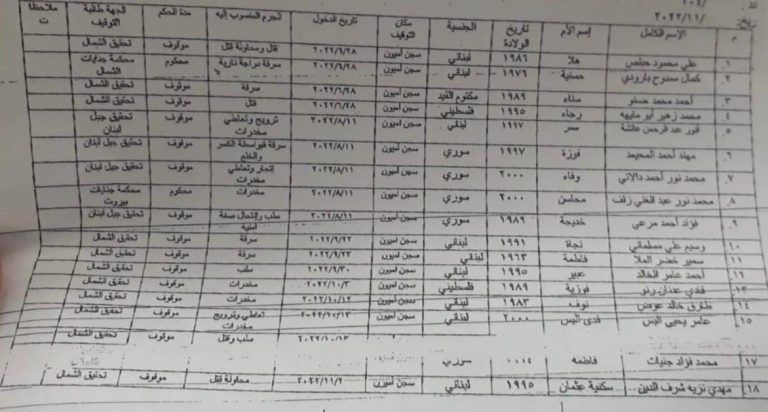 تاريخ: /٢٠٢٢/١١
م الإسم الكامل إسم الأم تاريخ الولادة الجنسية مكان التوقيف تاريخ الدخول الجرم المنسوب إليه مدة الحكم الجهة طالبة التوقيف ملاحظات
١. علي محمود حبلص هلا ١٩٨٦ لبناني سجن أميون ٢٠٢٢/٦/٢٨ قتل ومحاولة قتل موقوف تحقيق الشمال
٢. كمال ممدوح بارودي حسنية ١٩٧٦ لبناني سجن أميون ٢٠٢٢/٦/٢٨ سرقة دراجة نارية محكوم محكمة جنايات الشمال
٣. أحمد محمد حسنو سناء ١٩٨٩ مكتوم القيد سجن أميون ٢٠٢٢/٦/٢٨ سرقة موقوف تحقيق الشمال
٤. محمد زهير أبو مايهه رجاء ١٩٩٥ فلسطيني سجن أميون ٢٠٢٢/٦/٢٨ قتل موقوف تحقيق الشمال
٥. عبد الرحمن عائشة سمر ١٩٩٧ لبناني سجن أميون ٢٠٢٢/٨/١١ ترويج وتعاطي مخدرات موقوف تحقيق جبل لبنان
٦. مهند أحمد المحيمد فوزة ١٩٩٧ سوري سجن أميون ٢٠٢٢/٨/١١ سرقة بواسطة الكسر والخلع موقوف تحقيق جبل لبنان
٧. محمد نور أحمد دالاتي وفاء ٢٠٠٠ سوري سجن أميون ٢٠٢٢/٨/١١ إتجار وتعاطي مخدرات موقوف تحقيق لبنان
٨. محمد نور عبد الغني زلف محاسن ٢٠٠٠ سوري سجن أميون ٢٠٢٢/٨/١١ مخدرات محكوم محكمة جنايات بيروت
٩. فؤاد أحمد مرعي خديجة ١٩٨٩ سوري سجن أميون ٢٠٢٢/٨/١١ سلب وإنتحال صفة أمنية موقوف تحقيق جبل لبنان
١٠. وسيم علي مسلماني نجاة ١٩٩١ لبناني سجن أميون ٢٠٢٢/٩/٢٢ سرقة موقوف تحقيق الشمال
١١. سمير خضر الملا فاطمة ١٩٦٣ لبناني سجن أميون ٢٠٢٢/٩/٢٣ سرقة موقوف تحقيق الشمال
١٢. أحمد عامر الخالد عبير ١٩٩٥ لبناني سجن أميون ٢٠٢٢/٩/٣٠ سلب موقوف تحقيق الشمال
١٣. فادي عدنان فوزية ١٩٨٩ فلسطيني سجن أميون ٢٠٢٢/١٠/٣ مخدرات موقوف تحقيق الشمال
١٤. طارق خالد عوض نوف ١٩٨٣ لبناني سجن أميون ٢٠٢٢/١٠/١٢ مخدرات موقوف تحقيق الشمال
١٥. عامر يحيى البس فدى البس ٢٠٠٠ لبناني سجن أميون ٢٠٢٢/١٠/١٣ تعاطي وترويج مخدرات موقوف تحقيق الشمال
٢٠٢٢/١٠/١٣ سلب وقتل موقوف تحقيق الشمال
١٧. محمد فؤاد جنيات فاطمه سوري
١٨. مهدي نزيه شرف الدين سكنية عثمان ١٩٩٥ لبناني سجن أميون ٢٠٢٢/١١/٢ محاولة قتل موقوف تحقيق الشمال